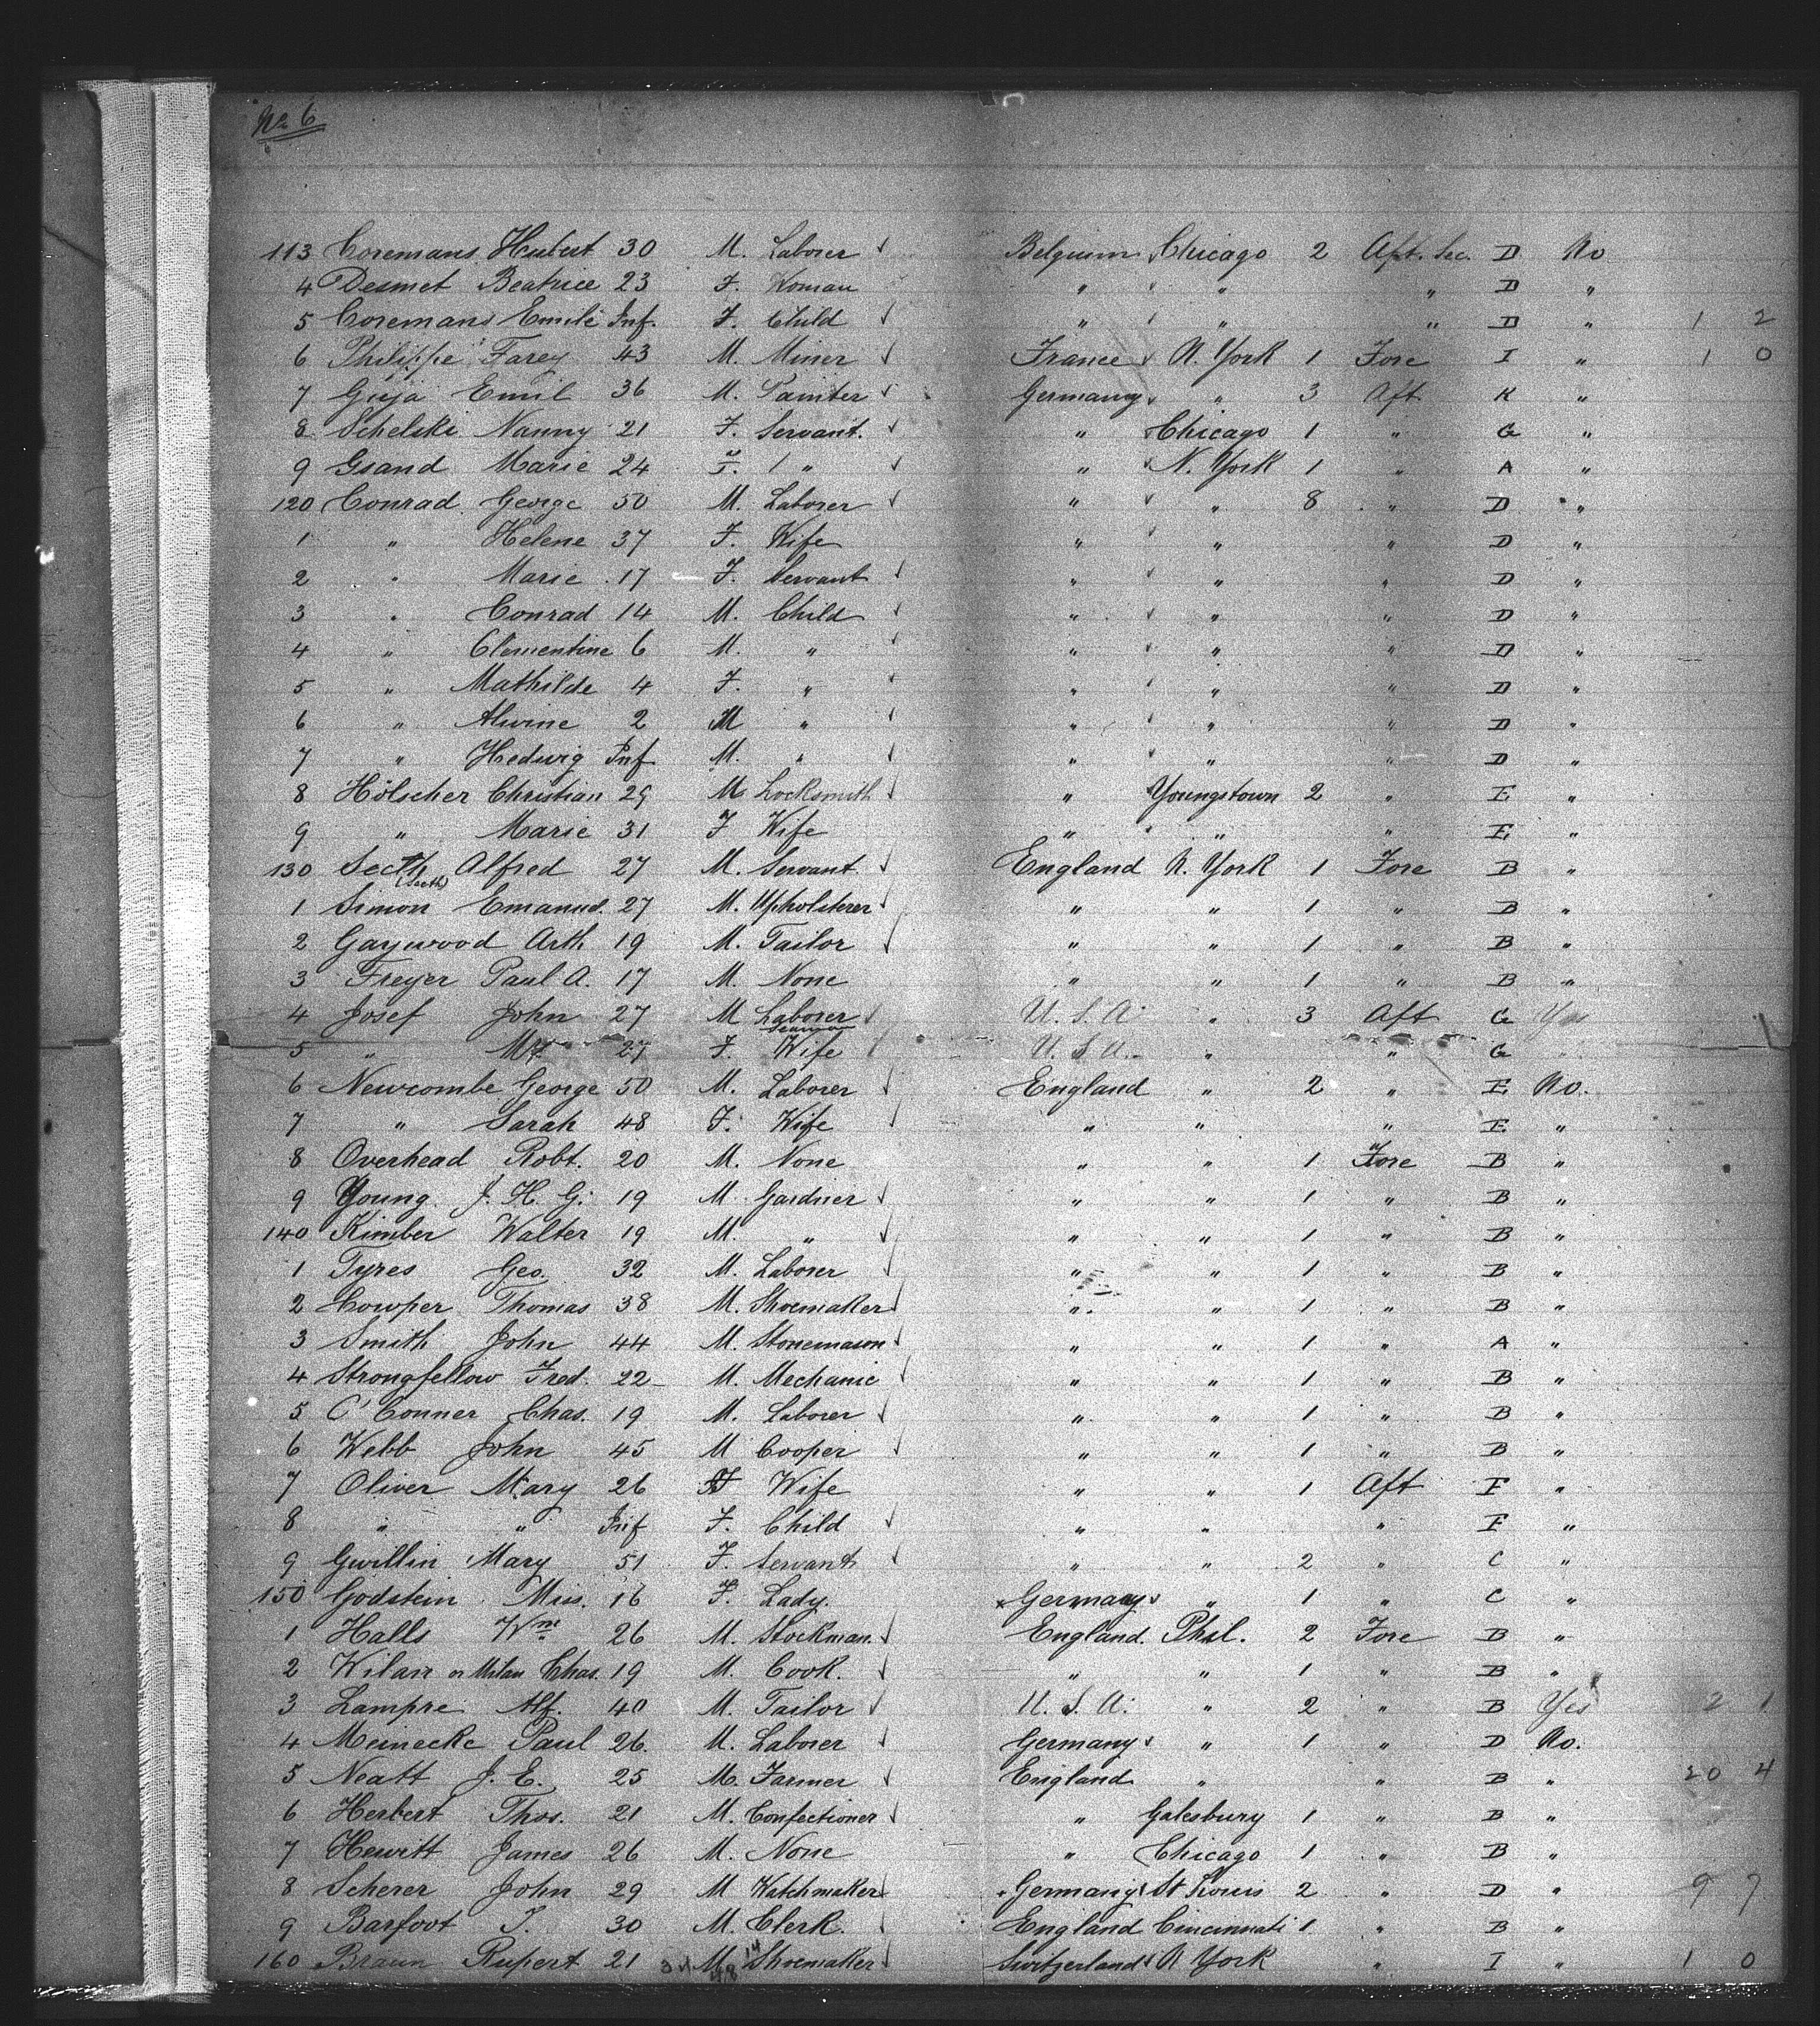 No 6
113 Coremans Hubert 30 M. Laborer Belgium Chicago 2 Aft. Sec. D No
4 Desmet Beatrice 23 F. Woman " " " D "
5 Coremans Emile Inf. F. Child " " " D " 1 2
6 Philippe Farey 43 M. Miner France N. York 1 Fore I " 1 0
7 Gieja Emil 36 M. Painter Germany " 3 Aft K "
8 Schelski Nanny 21 F. Servant. " Chicago 1 " G "
9 Gsand Marie 24 F. " " N. York 1 " A "
120 Conrad George 50 M. Laborer " " 8 " D "
1 " Helene 37 F. Wife " " " D "
2 " Marie 17 F. Servant " " " D "
3 " Conrad 14 M. Child " " " D "
4 " Clementine 6 M. " " " " D "
5 " Mathilde 4 F. " " " " D "
6 " Alwine 2 M " " " " D "
7 " Hedwig Inf. M. " " " " D "
8 Hölscher Christian 29 M. Locksmith " Youngstown 2 " E "
9 " Marie 31 F Wife " " " E "
130 Secth Alfred 27 M. Servant England N. York 1 Fore B "
(Seeth)
1 Simon Emanuel. 27 M. Upholsterer " " 1 " B "
2 Gaywood Arth 19 M. Tailor " " 1 " B "
3 Freyer Paul A. 17 M. None " " 1 " B "
4 Josef John 27 M Laborer U. S. A. " 3 Aft G Yes
5 " 27 F. Wife U. S. A. " " G "
6 Newcombe George 50 M. Laborer England " 2 " E No.
7 " Sarah 48 F. Wife " " " E "
8 Overhead Robt. 20 M. None " " 1 Fore B "
9 Young J. H. G. 19 M Gardner " " 1 " B "
140 Kimber Walter 19 M. " " " 1 " B "
1 Tyres Geo. 32 M. Laborer " " 1 " B "
2 Cowper Thomas 38 M. Shoemaker " " 1 " B "
3 Smith John 44 M. Stonemason " " 1 " A "
4 Strongfellow Fred. 22 M. Mechanic " " 1 " B "
5 O'Conner Chas. 19 M. Laborer " " 1 " B "
6 Webb John 45 M Cooper " " 1 " B "
7 Oliver Mary 26 F Wife " " 1 Aft F "
8 " " Inf F. Child " " " F "
9 Gwillin Mary 51 F. Servant " " 2 " C "
150 Godstein Miss. 16 F. Lady. Germany " 1 " C "
1 Halls Wm 26 M. Stockman. England. Phil. 2 Fore B "
2 Wilan or Milan Chas. 19 M. Cook. " " 1 " B "
3 Lampre Alf. 40 M. Tailor U. S. A. " 2 " B Yes 2 1
4 Meinecke Paul 26. M. Laborer Germany " 1 " D No.
5 Neatt J. E. 25 M. Farmer England " " B " 20 4
6 Herbert Thos. 21 M. Confectioner " Galesbury 1 " B "
7 Hewitt James 26 M. None " Chicago 1 " B "
8 Scherer John 29 M Watchmaker Germany St Louis 2 " D " 9 7
9 Barfoot T. 30 M. Clerk. England Cincinnati 1 " B "
160 Braun Rupert 21 M. Shoemaker Switzerland N York " I " 1 0